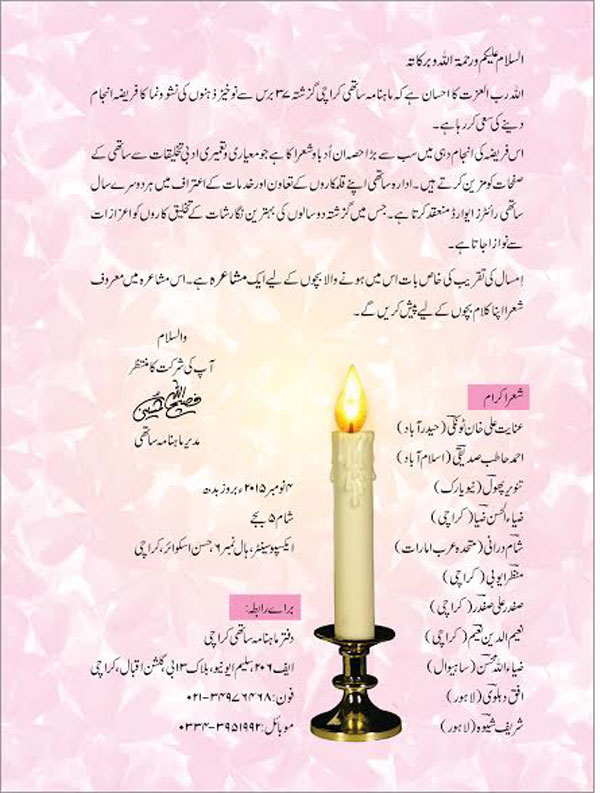 السلام علیکم ورحمۃ اللہ وبرکاتہ
اللہ رب العزت کا احسان ہے کہ ماہنامہ ساتھی کراچی گزشتہ ۳۷ برس سے نوخیز ذہنوں کی نشوونما کا فریضہ انجام
دینے کی سعی کر رہا ہے۔
اس فریضہ کی انجام دہی میں سب سے بڑا حصہ ان اُدبا و شعرا کا ہے جو معیاری و تعمیری ادبی تخلیقات سے ساتھی کے
صفحات کو مزین کرتے ہیں۔ ادارہ ساتھی اپنے قلمکاروں کے تعاون اور خدمات کے اعتراف میں ہر دوسرے سال
ساتھی رائٹرز ایوارڈ منعقد کرتا ہے۔ جس میں گزشتہ دو سالوں کی بہترین نگارشات کے تخلیق کاروں کو اعزازات
سے نوازا جاتا ہے۔
اِمسال کی تقریب کی خاص بات اس میں ہونے والا بچوں کے لیے ایک مشاعرہ ہے۔ اس مشاعرہ میں معروف
شعرا اپنا کلام بچوں کے لیے پیش کریں گے۔
والسلام
آپ کی شرکت کا منتظر
فصیح اللہ حسینی
مدیر ماہنامہ ساتھی
شعرا کرام
عنایت علی خان ٹونکی (حیدر آباد)
احمد حاطب صدیقی (اسلام آباد)
تنویر پھول (نیویارک)
ضیاء الحسن ضیا (کراچی)
شام درانی (متحدہ عرب امارات)
منظر ایوبی (کراچی)
صفدر علی صفدر (کراچی)
نعیم الدین نعیم (کراچی)
ضیاء اللہ محسن (ساہیوال)
افق دہلوی (لاہور)
شریف شیوہ (لاہور)
۴ نومبر ۲۰۱۵ء بروز بدھ
شام ۵ بجے
ایکسپو سینٹر، ہال نمبر ۶، حسن اسکوائر، کراچی
براے رابطہ:
دفتر ماہنامہ ساتھی کراچی
ایف ۲۰۶، سلیم ایونیو، بلاک ۱۳ بی، گلشن اقبال، کراچی
فون: ۰۲۱-۳۴۹۷۶۴۶۸
موبائل: ۰۳۳۴-۳۹۵۱۹۹۲